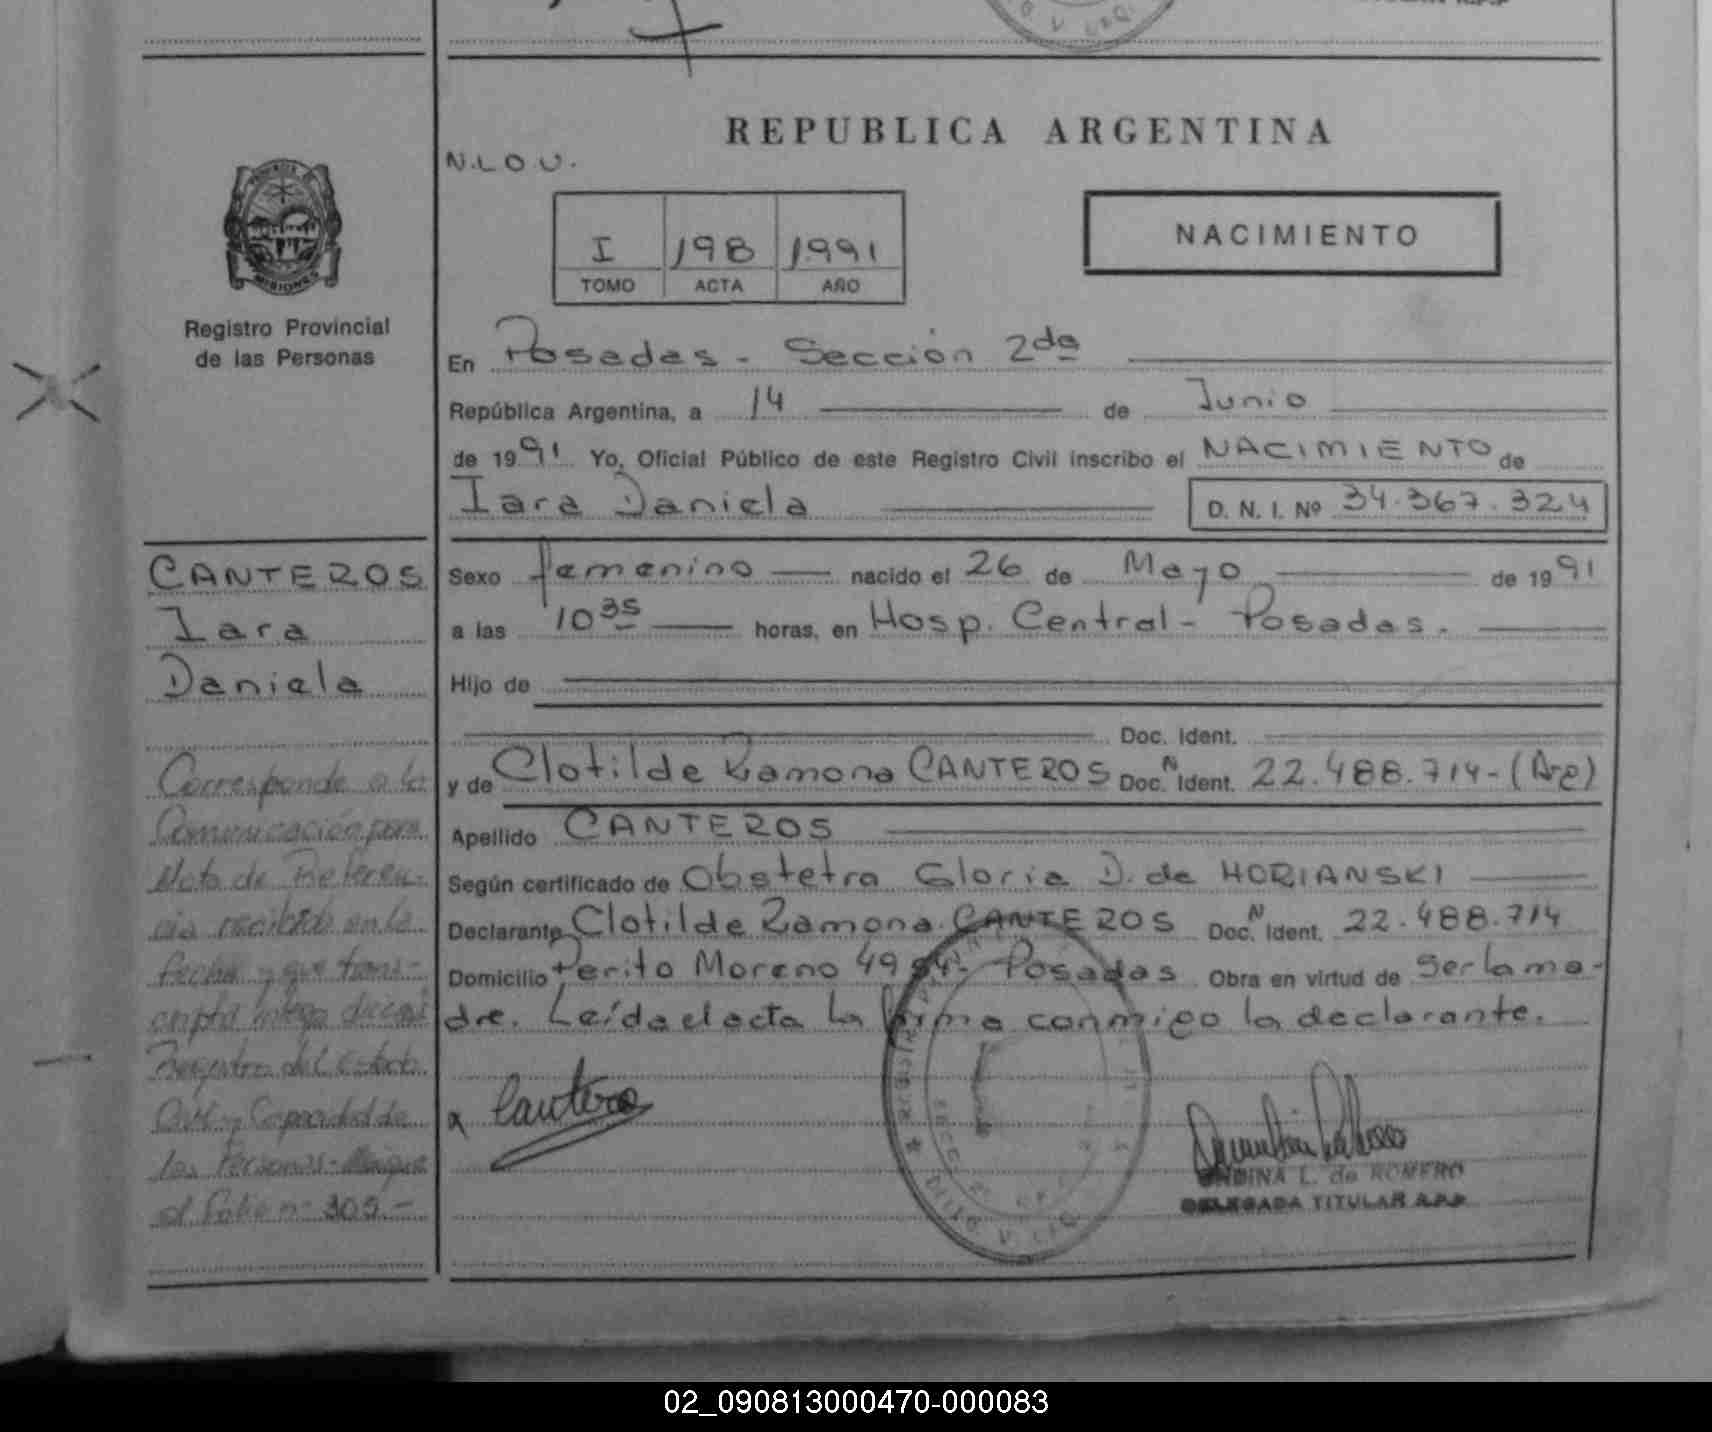 REPUBLICA ARGENTINA
N.L.O.U.
I 198 1991
TOMO ACTA AÑO
NACIMIENTO
MISIONES
Registro Provincial
de las Personas
En Posadas - Sección 2da
República Argentina, a 14 de Junio
de 1991 Yo, Oficial Público de este Registro Civil inscribo el NACIMIENTO de
Iara Daniela D. N. I. Nº 34.367.324
CANTEROS
Iara
Daniela
Sexo femenino nacido el 26 de Mayo de 1991
a las 10 35 horas, en Hosp. Central - Posadas.
Hijo de
Doc. Ident.
y de Clotilde Ramona CANTEROS Doc. N Ident. 22.488.714- (Arg)
Apellido CANTEROS
Según certificado de Obstetra Gloria D. de HORIANSKI
Declarante Clotilde Ramona CANTEROS Doc. N Ident. 22.488.714
Domicilio Perito Moreno - Posadas Obra en virtud de ser la ma-
dre. Leída el acta la firma conmigo la declarante.
Corresponde a la
Comunicación para
Nota de Referen-
cia recibida en la
fecha y que trans-
cripta íntegra dice:
Registro del estado
Civil y Capacidad de
las Personas-
el Folio nº 309.-
Canteros
ONDINA L. de ROMERO
DELEGADA TITULAR R.P.P.
02_090813000470-000083